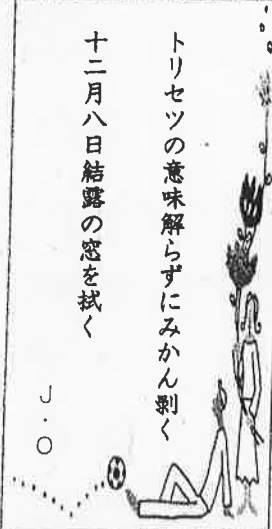 トリセツの意味解らずにみかん剝く
十二月八日結露の窓を拭く
J・O